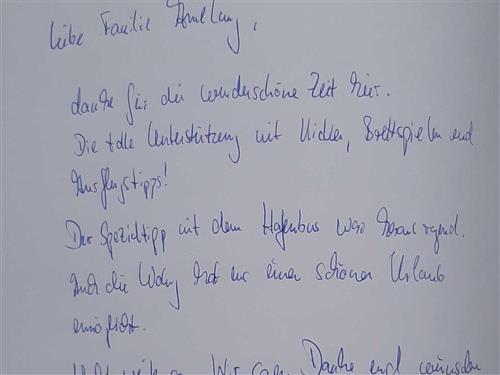 liebe Familie Amelung,
danke für die wunderschöne Zeit hier.
Die tolle Unterstützung mit Kicker, Brettspielen und
Ausflugstipps!
Der Spezialtipp mit dem Hafenbus war hervorragend.
Auch die Wohng hat uns einen schönen Urlaub
ermöglicht.
Wir Danke und wünschen